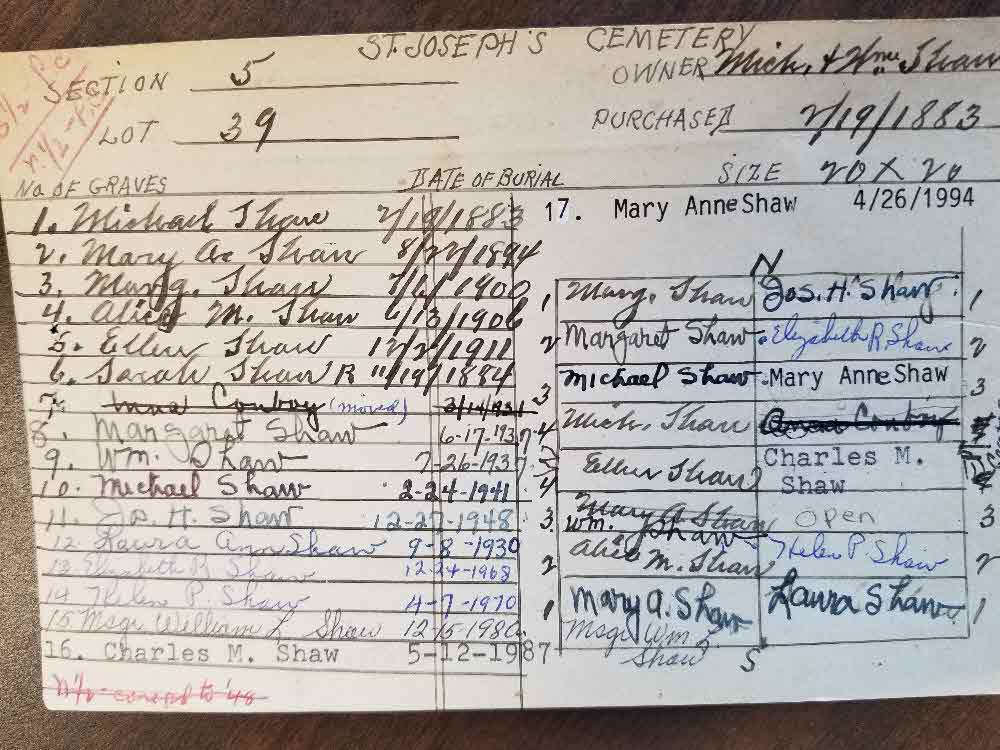 ST. JOSEPH'S CEMETERY
SECTION 5
OWNER Mich. + Wm. Shaw
LOT 39
PURCHASED 2/19/1883
SIZE 20 X 20
No. OF GRAVES DATE OF BURIAL
1. Michael Shaw 2/19/1883
2. Mary A. Shaw 8/22/1894
3. Marg. Shaw 7/6/1900
4. Alice M. Shaw 4/13/1906
5. Ellen Shaw 12/2/1911
6. Sarah Shaw R 11/19/1884
7. Anna Conboy (moved) 3/14/1931
8. Margaret Shaw 6-17-1937
9. Wm. Shaw 7-26-1937
10. Michael Shaw 2-24-1941
11. Jos. H. Shaw 12-27-1948
12 Laura Ann Shaw 9-8-1930
13 Elizabeth R Shaw 12-24-1968
14 Helen P. Shaw 4-7-1970
15 Msgr William L Shaw 12-15-1980
16. Charles M. Shaw 5-12-1987
17. Mary Anne Shaw 4/26/1994
N
1 Marg. Shaw Jos. H. Shaw 1
2 Margaret Shaw Elizabeth R. Shaw 2
3 Michael Shaw Mary Anne Shaw 3
4 Mich. Shaw Anna Conboy
4 Ellen Shaw Charles M. Shaw
3 Mary A Shaw
Wm. Shaw Open 3
2 Alice M. Shaw Helen P Shaw 2
1 Mary A. Shaw Laura Shaw 1
Msgr Wm. L Shaw
S